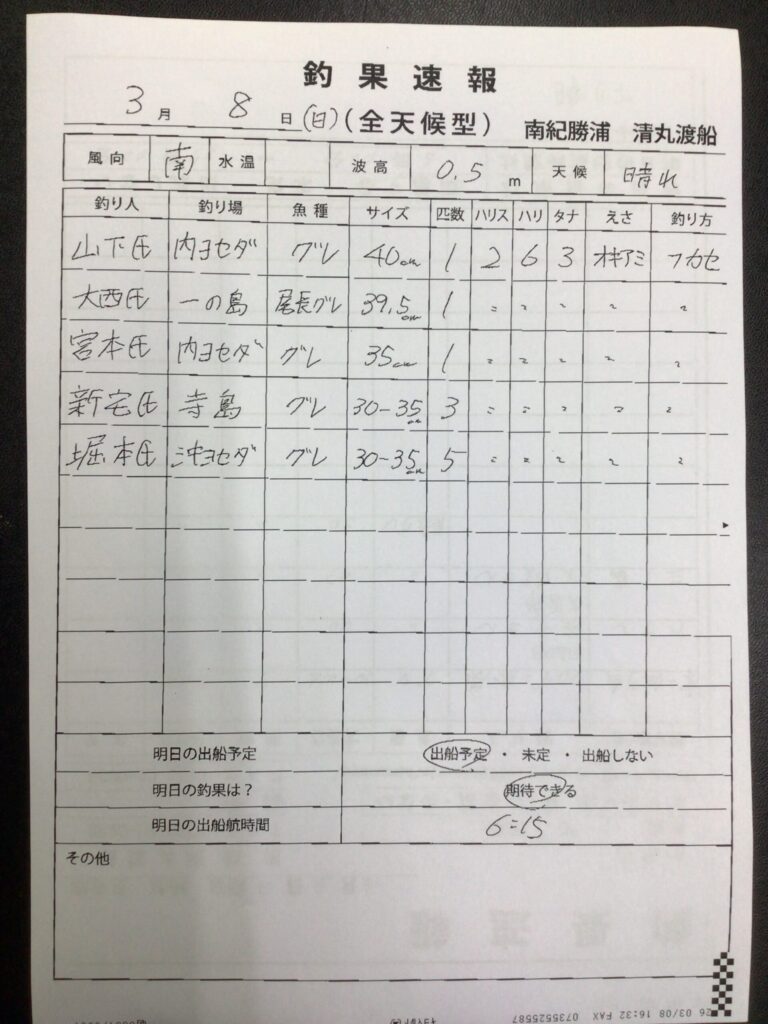 釣果速報
3月8日(日)(全天候型) 南紀勝浦 清丸渡船
風向 南 水温 波高 0.5m 天候 晴れ
釣り人 釣り場 魚種 サイズ 匹数 ハリス ハリ タナ えさ 釣り方
山下氏 内ヨセダ グレ 40cm 1 2 6 3 オキアミ フカセ
大西氏 一の島 尾長グレ 39.5cm 1 〃 〃 〃 〃 〃
宮本氏 内ヨセダ グレ 35cm 1 〃 〃 〃 〃 〃
新宅氏 寺島 グレ 30-35cm 3 〃 〃 〃 〃 〃
堀本氏 沖ヨセダ グレ 30-35cm 5 〃 〃 〃 〃 〃
明日の出船予定 出船予定・未定・出船しない
明日の釣果は? 期待できる
明日の出船航時間 6:15
その他
26 03/08 16:32 FAX 0735525587